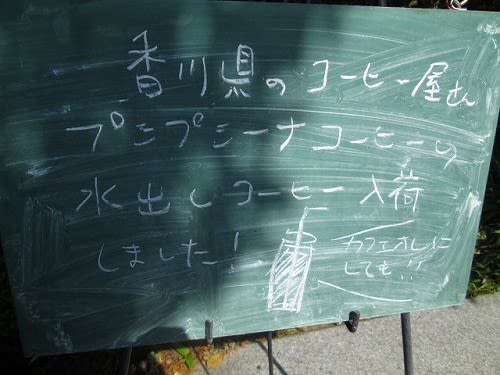 香川県のコーヒー屋さん
プシプシーナコーヒーの
水出しコーヒー入荷
しました!
カフェオレに
しても!!